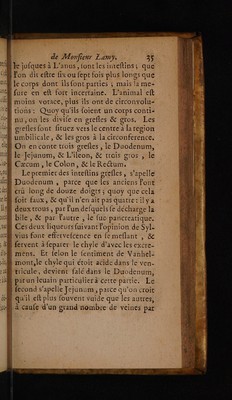 de Monsieur Lamy. 35
le jusques à L'anus, sont les intestins; que
l'on dit estre six ou sept fois plus longs que
le corps dont ils sont parties; mais la me-
sure en est fort incertaine. L'animal est
moins vorace, plus ils ont de circonvolu-
tions: Quoy qu'ils soient un corps conti-
nu, on les divise en gresles & gros. Les
gresles sont situez vers le centre à la region
umbilicale, & les gros à la circonference.
On en conte trois gresles, le Duodenum,
le Jejunum, & L'ileon, & trois gros, le
Cæcum, le Colon, & le Rectum.
Le premier des intestins gresles, s'apelle
Duodenum, parce que les anciens l'ont
crû long de douze doigts; quoy que cela
soit faux, & qu'il n'en ait pas quatre: il y a
deux trous, par l'un desquels se décharge la
bile, & par l'autre, le suc pancreatique.
Ces deux liqueurs suivant l'opinion de Syl-
vius font effervescence en se meslant, &
servent à separer le chyle d'avec les excre-
mens. Et selon le sentiment de Vanhel-
mont, le chyle qui étoit acide dans le ven-
tricule, devient salé dans le Duodenum,
par un levain particulier à cette partie. Le
second s'apelle Jejunum, parce qu'on croit
qu'il est plus souvent vuide que les autres,
à cause d'un grand nombre de veines par